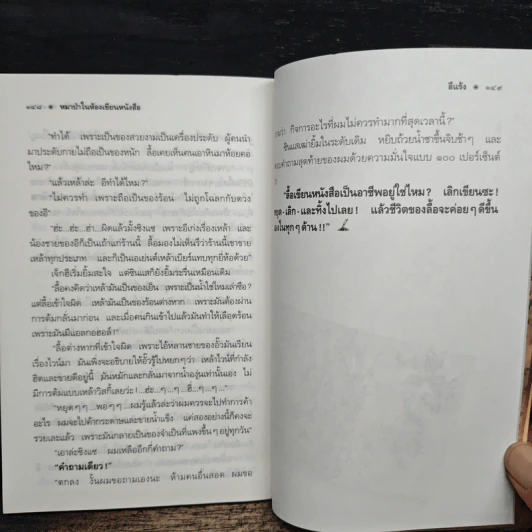 ๑๔๘ ๏ หมาบ้าในห้องเขียนหนังสือ
"ทำได้ เพราะเป็นของสวยงามเป็นเครื่องประดับ ผู้คนนำ
มาประดับกายไม่ถือเป็นของหนัก ลื้อเคยเห็นคนเอาหินมาห้อยคอ
ไหม?"
"แล้วเหล้าล่ะ อีทำได้ไหม?"
"ไม่ควรทำ เพราะถือเป็นของร้อน ไม่ถูกโฉลกกับดวง
ของอี"
"ฮ่ะ..ฮ่ะ..ฮ่า..ผิดแล้วมั้งซิงแซ เพราะอีเก่งเรื่องเหล้า และ
น้องชายของอีก็เป็นเถ้าแก่ร้านนี้ ลื้อมองไม่เห็นรึว่าร้านนี้เขาขาย
เหล้าทุกประเภท และอีก็เป็นเอเย่นต์เหล้าเบียร์แทบทุกยี่ห้อด้วย"
เจ็กฮีเริ่มยิ้มสะใจ แต่ซินแสก็ยังยิ้มระรื่นเหมือนเดิม
"ลื้อคงคิดว่าเหล้ามันเป็นของเย็น เพราะเป็นน้ำใช่ไหมล่าซือ?
แต่ลื้อเข้าใจผิด เหล้ามันเป็นของร้อนต่างหาก เพราะมันต้องผ่าน
การต้มกลั่นมาก่อน และเมื่อคนกินเข้าไปแล้วมันทำให้เลือดร้อน
เพราะมันมีแอลกอฮอล์!"
"ลื้อต่างหากที่เข้าใจผิด เพราะไอ้หลานชายของอั๊วมันเรียน
เรื่องไวน์มา มันเพิ่งจะอธิบายให้อั๊วรู้ไปหยกๆว่า เหล้าไวน์ที่กำลัง
ฮิตและขายดีอยู่นี้ มันหมักและกลั่นมาจากน้ำองุ่นเท่านั้นเอง ไม่
มีการต้มแบบเหล้าวิสกี้เลยว่ะ!..ฮ่ะ...ๆ...ๆ...ฮี่...ๆ...ๆ..."
"หยุดๆๆ...พอๆๆ... ผมรู้แล้วล่ะว่าผมควรจะไปทำการค้า
อะไร ผมจะไปค้ากระดาษและขายน้ำแข็ง แต่สองอย่างนี้ก็คงจะ
รวยเละแล้ว เพราะมันกลายเป็นของจำเป็นที่แพงขึ้นๆอยู่ทุกวัน"
"เอาล่ะซิงแซ ผมเหลืออีกกี่คำถาม?"
"คำถามเดียว!"
"ตกลง งั้นผมขอถามเองนะ ห้ามคนอื่นสอด ผมขอ
อีแร้ง ๏ ๑๔๙
ถามว่า กิจการอะไรที่ผมไม่ควรทำมากที่สุดเวลานี้?"
ซินแสเฒ่ายิ้มในระดับเดิม หยิบถ้วยน้ำชาขึ้นจิบช้าๆ และ
คำถามสุดท้ายของผมด้วยความมั่นใจแบบ ๑๐๐ เปอร์เซ็นต์
"ลื้อเขียนหนังสือเป็นอาชีพอยู่ใช่ไหม? เลิกเขียนซะ!
หยุด-เลิก-และทิ้งไปเลย! แล้วชีวิตของลื้อจะค่อยๆดีขึ้น
ในทุกๆด้าน!!"